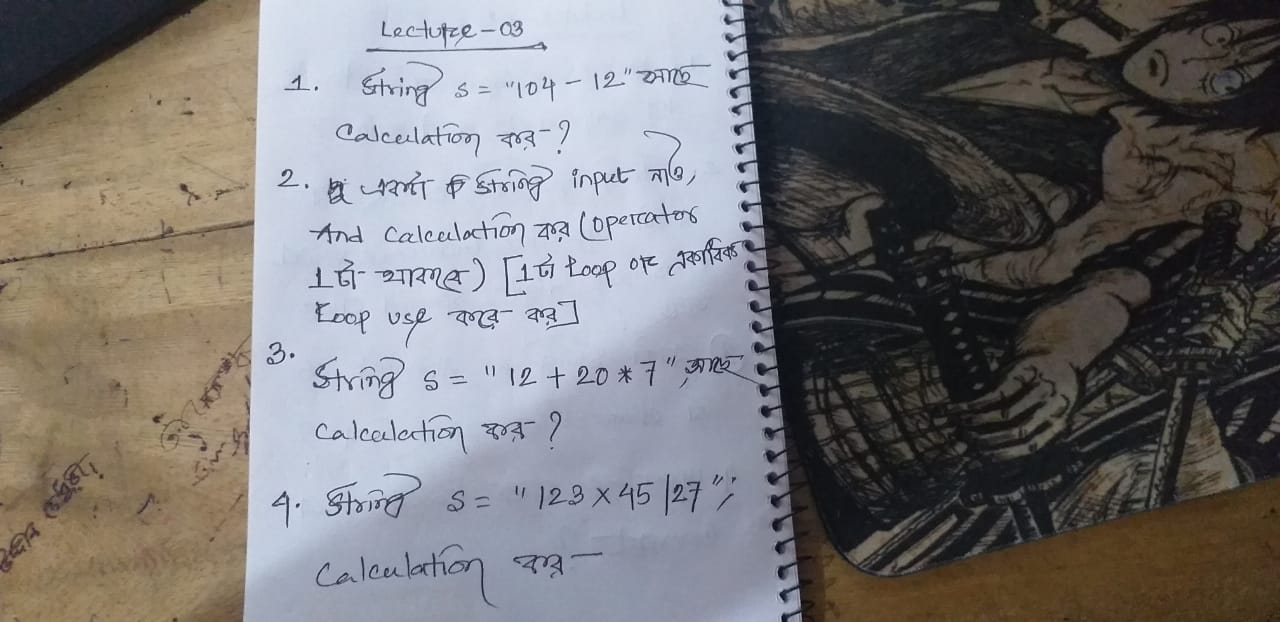 Lecture - 03
1. String s = "104 - 12" আছে
Calculation কর - ?
2. একটা String input নাও,
And Calculation কর (operator
1টা থাকবে) [1টা Loop or একাধিক
Loop use করে কর]
3.
String s = "12 + 20 * 7", আছে
Calculation কর ?
4. String s = "123 x 45 / 27";
Calculation কর -